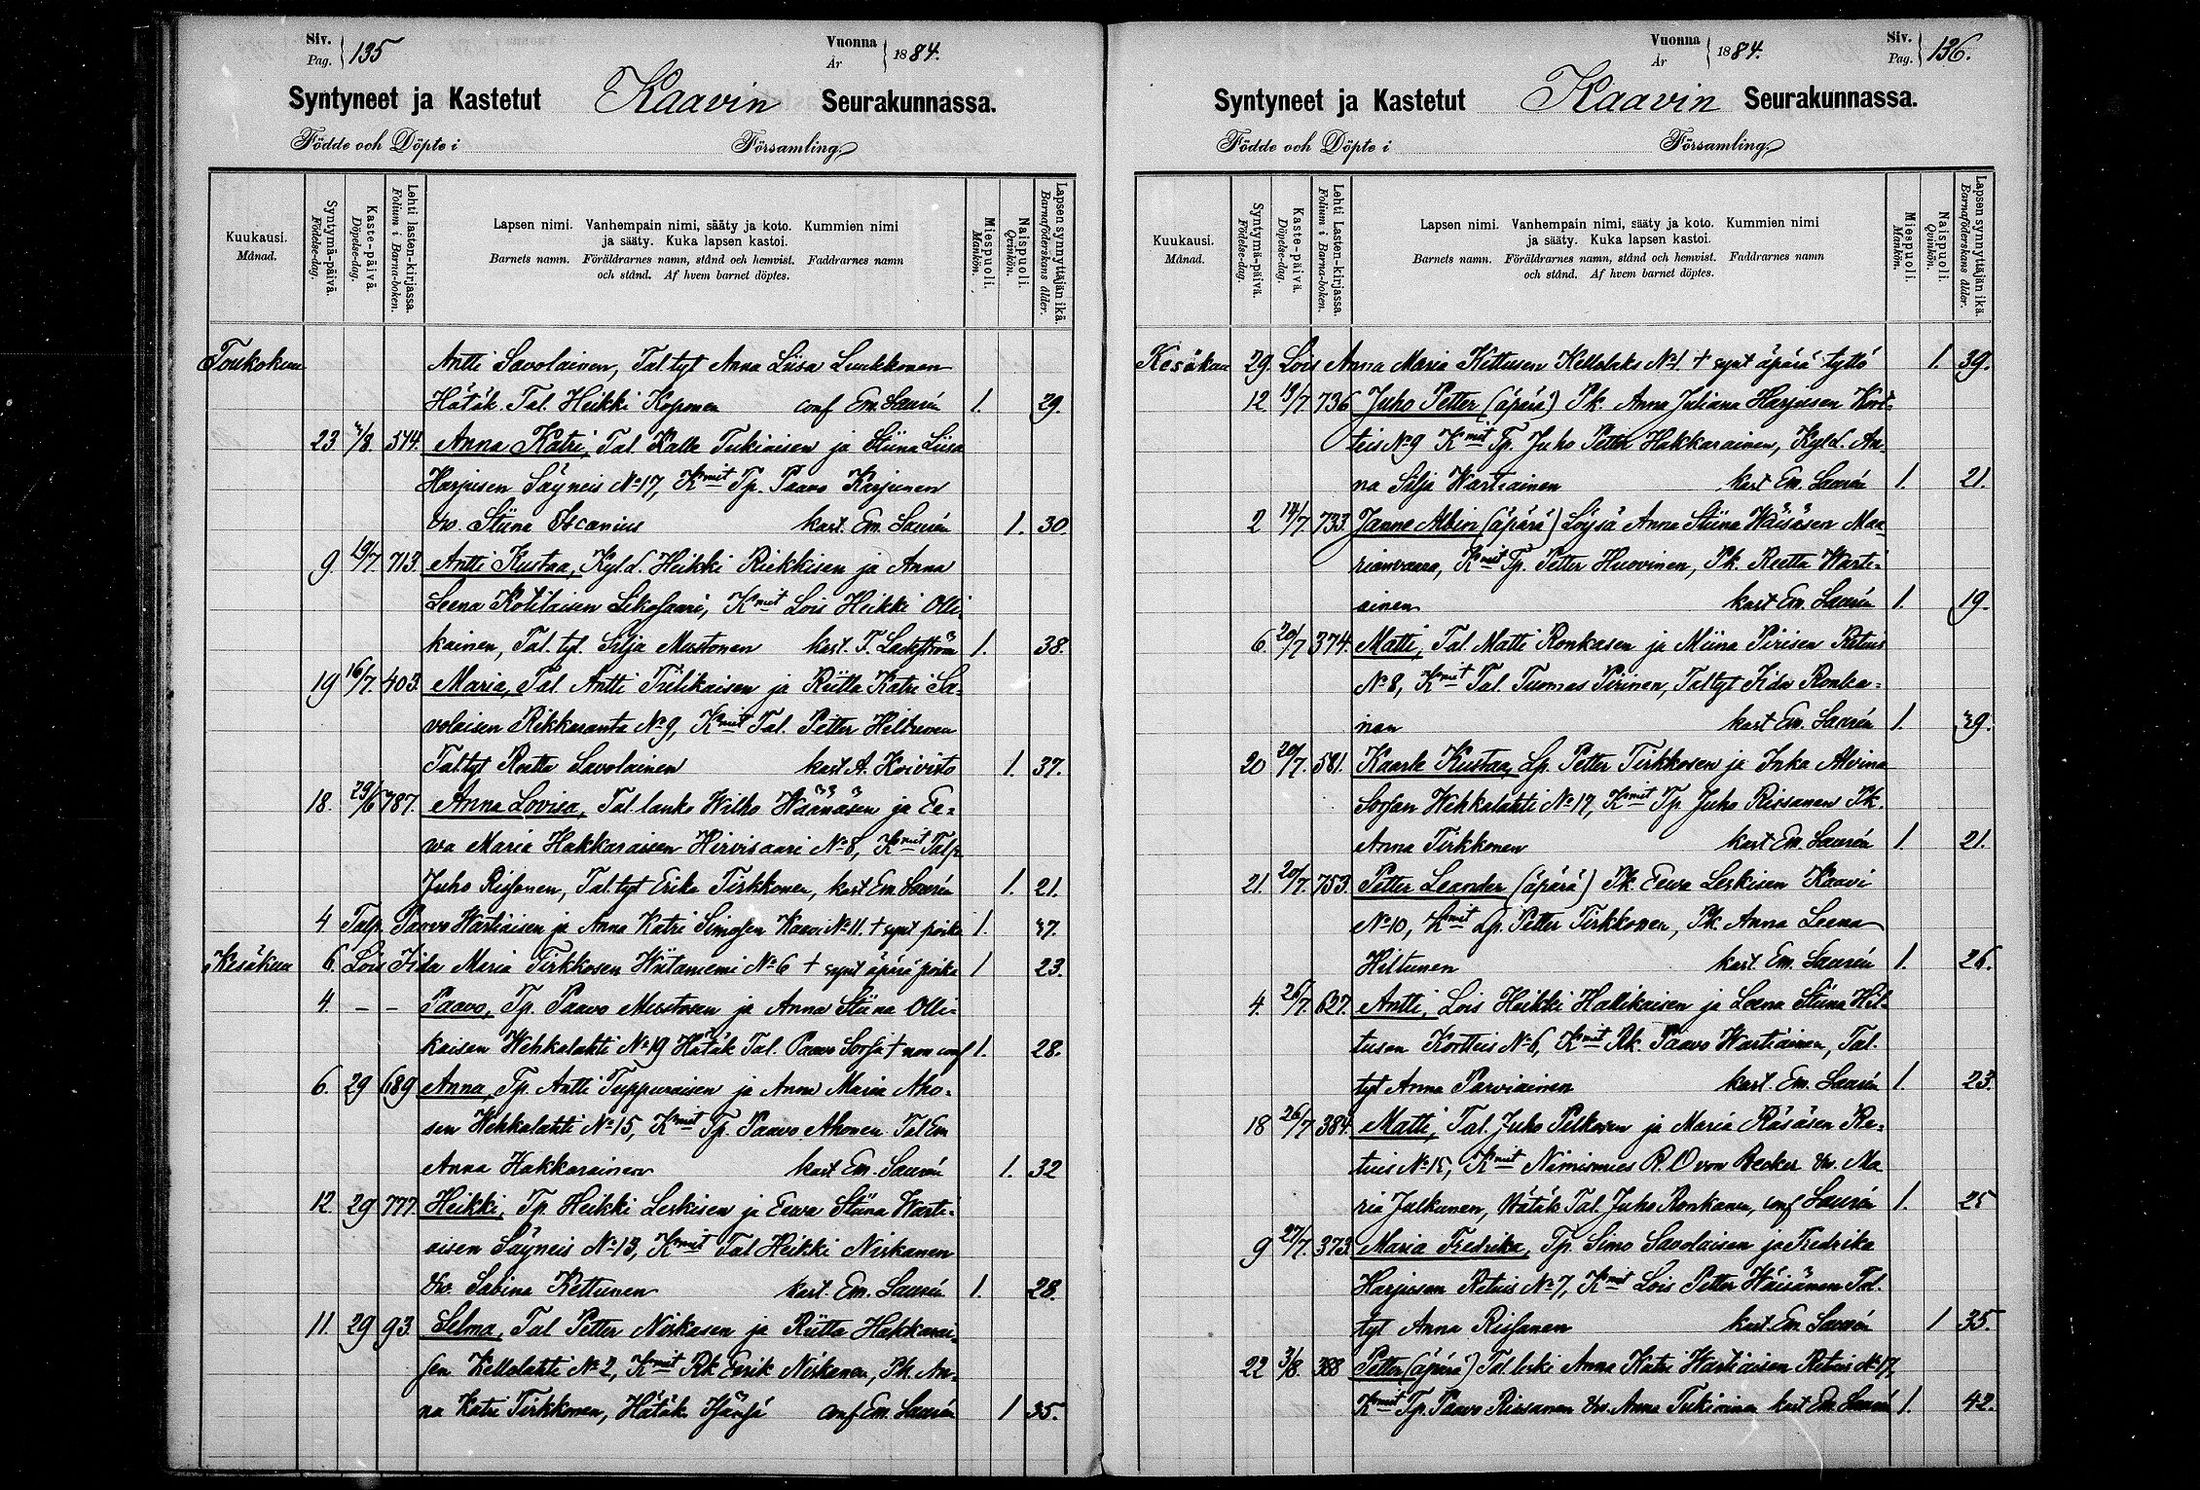 Siv. Pag. 135
Vuonna År 1884.
Syntyneet ja Kastetut Kaavin Seurakunnassa.
Födde och Döpte i Församling.
Kuukausi. Månad.
Syntymä-päivä. Födelse-dag.
Kaste-päivä. Döpelse-dag.
Lehti lasten-kirjassa. Folium i Barna-boken.
Lapsen nimi. Vanhempain nimi, sääty ja koto. Kummien nimi
ja sääty. Kuka lapsen kastoi.
Barnets namn. Föräldrarnes namn, stånd och hemvist. Faddrarnes namn
och stånd. Af hvem barnet döptes.
Miespuoli. Mankön.
Naispuoli. Qvinkön.
Lapsen synnyttäjän ikä. Barnaföderskans ålder.
Toukokuu Antti Savolainen, Tal tyt Anna Liisa Luukkonen
Hätäk. Tal. Heikki Koponen conf Em. Laurén 1. 29.
23 3/8. 544. Anna Katri, Tal. Kalle Tukiaisen ja Stiina Liisa
Harjusen Säyneis No 17, Kmit Tp. Paavo Karjunen
Stiina kast. Em. Laurén 1. 30.
9. 19/7 713. Antti Kustaa, Kyl.d. Heikki Riekkisen ja Anna
Leena Kotilaisen Sikosaari, Kmit Lois Heikki Olli
kainen, Tal. tyt. Silja Mustonen kast. F. 1. 38.
19 16/7. 403. Maria, Tal. Antti Tiilikaisen ja Riitta Katri Sa-
volaisen Rikkaranta No 9, Kmit Tal. Petter Hiltunen
Tal tyt Reetta Savolainen kast A. Koivisto 1. 37.
18. 29/6 787. Anna Lovisa, Tal. lanko Wilho Wäänäsen ja Ee-
wa Maria Hakkaraisen Hirvisaari No 8, Kmit Talp
Juho Rissanen, Tal. tyt Erika Tirkkonen, kast Em Laurén 1. 21.
4 Talp. Paavo Wartiaisen ja Anna Katri Simosen Kaavi No 11. + synt poika 1. 37.
Kesäkuu 6. Lois Iida Maria Tirkkosen Wiitaniemi No 6 + synt äpärä poika 1 23.
4. – – Paavo, Tp. Paavo Mustosen ja Anna Stiina Olli-
kaisen Wehkalahti No 19 Hätäk Tal. Paavo Sorsa + non conf 1. 28.
6. 29 689 Anna, Tp. Antti Tuppuraisen ja Anna Maria Aho-
sen Wehkalahti No 15, Kmit Tp. Paavo Ahonen Tal Em
Anna Hakkarainen kast Em. Laurén 1. 32
12 29 777. Heikki, Tp. Heikki Leskisen ja Eewa Stiina Warti-
aisen Säyneis No 13, Kmit Tal Heikki Niskanen
Sabina Kettunen kast. Em. Laurén 1. 28.
11. 29 93. Selma, Tal Petter Niskasen ja Riitta Hakkarai-
sen Kellolahti No 2, Kmit Rk Eerik Niskanen, Pk. An-
na Katri Tirkkonen, Hätäk. Isänsä conf Em. Laurén 1 35.
Vuonna År 1884.
Siv. Pag. 136.
Syntyneet ja Kastetut Kaavin Seurakunnassa.
Födde och Döpte i Församling.
Kuukausi. Månad.
Syntymä-päivä. Födelse-dag.
Kaste-päivä. Döpelse-dag.
Lehti Lasten-kirjassa. Folium i Barna-boken.
Lapsen nimi. Vanhempain nimi, sääty ja koto. Kummien nimi
ja sääty. Kuka lapsen kastoi.
Barnets namn. Föräldrarnes namn, stånd och hemvist. Faddrarnes namn
och stånd. Af hvem barnet döptes.
Miespuoli. Mankön.
Naispuoli. Qvinkön.
Lapsen synnyttäjän ikä. Barnaföderskans ålder.
Kesäkuu 29. Lois Anna Maria Kettusen No 1 + synt äpärä tyttö 1. 39.
12 13/7 736 Juho Petter (äpärä) Pk. Anna Juliana Harjusen Kort-
teis No 9 Kmit Tp. Juho Petter Hakkarainen, Kyl.d. An-
na Silja Wartiainen kast Em. Laurén 1. 21.
2 14/7 733 Janne Albin (äpärä) Löysä Anna Stiina Wäisäsen Maa
rianvaara, Kmit Tp. Petter Huovinen, Pk. Reetta Warti-
ainen kast Em. Laurén 1. 19.
6 20/7 374. Matti, Tal. Matti Ronkasen ja Miina Pirisen Retuus
No 8, Kmit Tal. Tuomas Pirinen, Tal tyt Iida Ronka-
nen kast Em. Laurén 1. 39.
20 20/7. 581. Kaarle Kustaa, Lp. Petter Tirkkosen ja Inka Alvina
Sorsan Wehkalahti No 17, Kmit Tp. Juho Rissanen Pk.
Anna Tirkkonen kast Em. Laurén 1 21.
21. 20/7. 753. Petter Leander (äpärä) Pk. Eewa Leskisen Kaavi
No 10, Kmit Lp. Petter Tirkkonen, Pk. Anna Leena
Hiltunen kast. Em. Laurén 1. 26.
4. 26/7. 627. Antti, Lois Heikki Hallikaisen ja Leena Stiina Hil-
tusen Kortteis No 6, Kmit Rk. Paavo Wartiainen, Tal.
tyt Anna Parviainen kast. Em. Laurén 1. 23.
18 26/7 384. Matti, Tal. Juho Pelkosen ja Maria Räsäsen Re-
tuis No 15, Kmit Nimismies R. O von Becker Ma
ria Julkunen, Hätäk Tal. Juho Ronkanen, conf Laurén 1. 25
9 27/7. 373. Maria Fredrika, Tp. Simo Savolaisen ja Fredrika
Harjusen Retuis No 7, Kmit Lois Petter Wäisänen Tal.
tyt Anna Rissanen kast. Em. Laurén 1 35.
22 3/8. 388 Petter (äpärä) Tal. leski Anna Katri Wartiaisen Retuis No 17,
Kmit Tp. Paavo Rissanen Anna Tukiainen kast Em Laurén 1. 42.